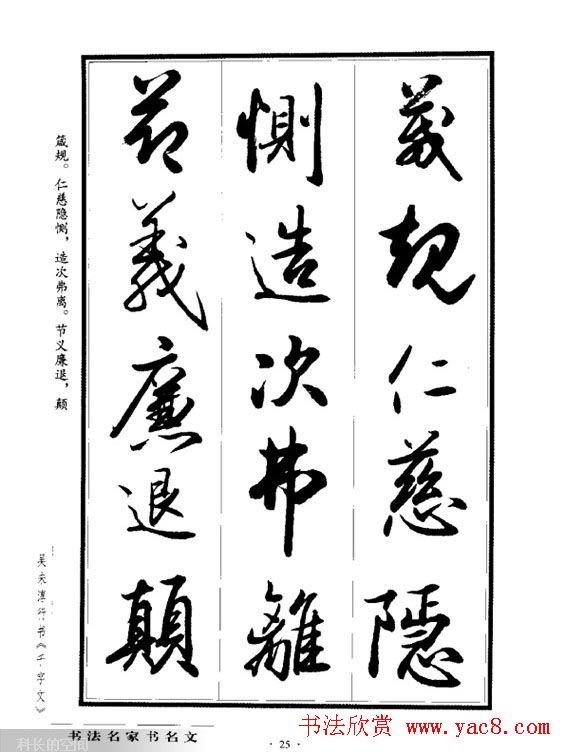 箴規仁慈隱
惻造次弗離
節義廉退顛
箴规。仁慈隐恻，造次弗离。节义廉退，颠
吴未淳行书《千字文》
书法名家书名文
·25·
科长的空间
书法欣赏 www.yac8.com